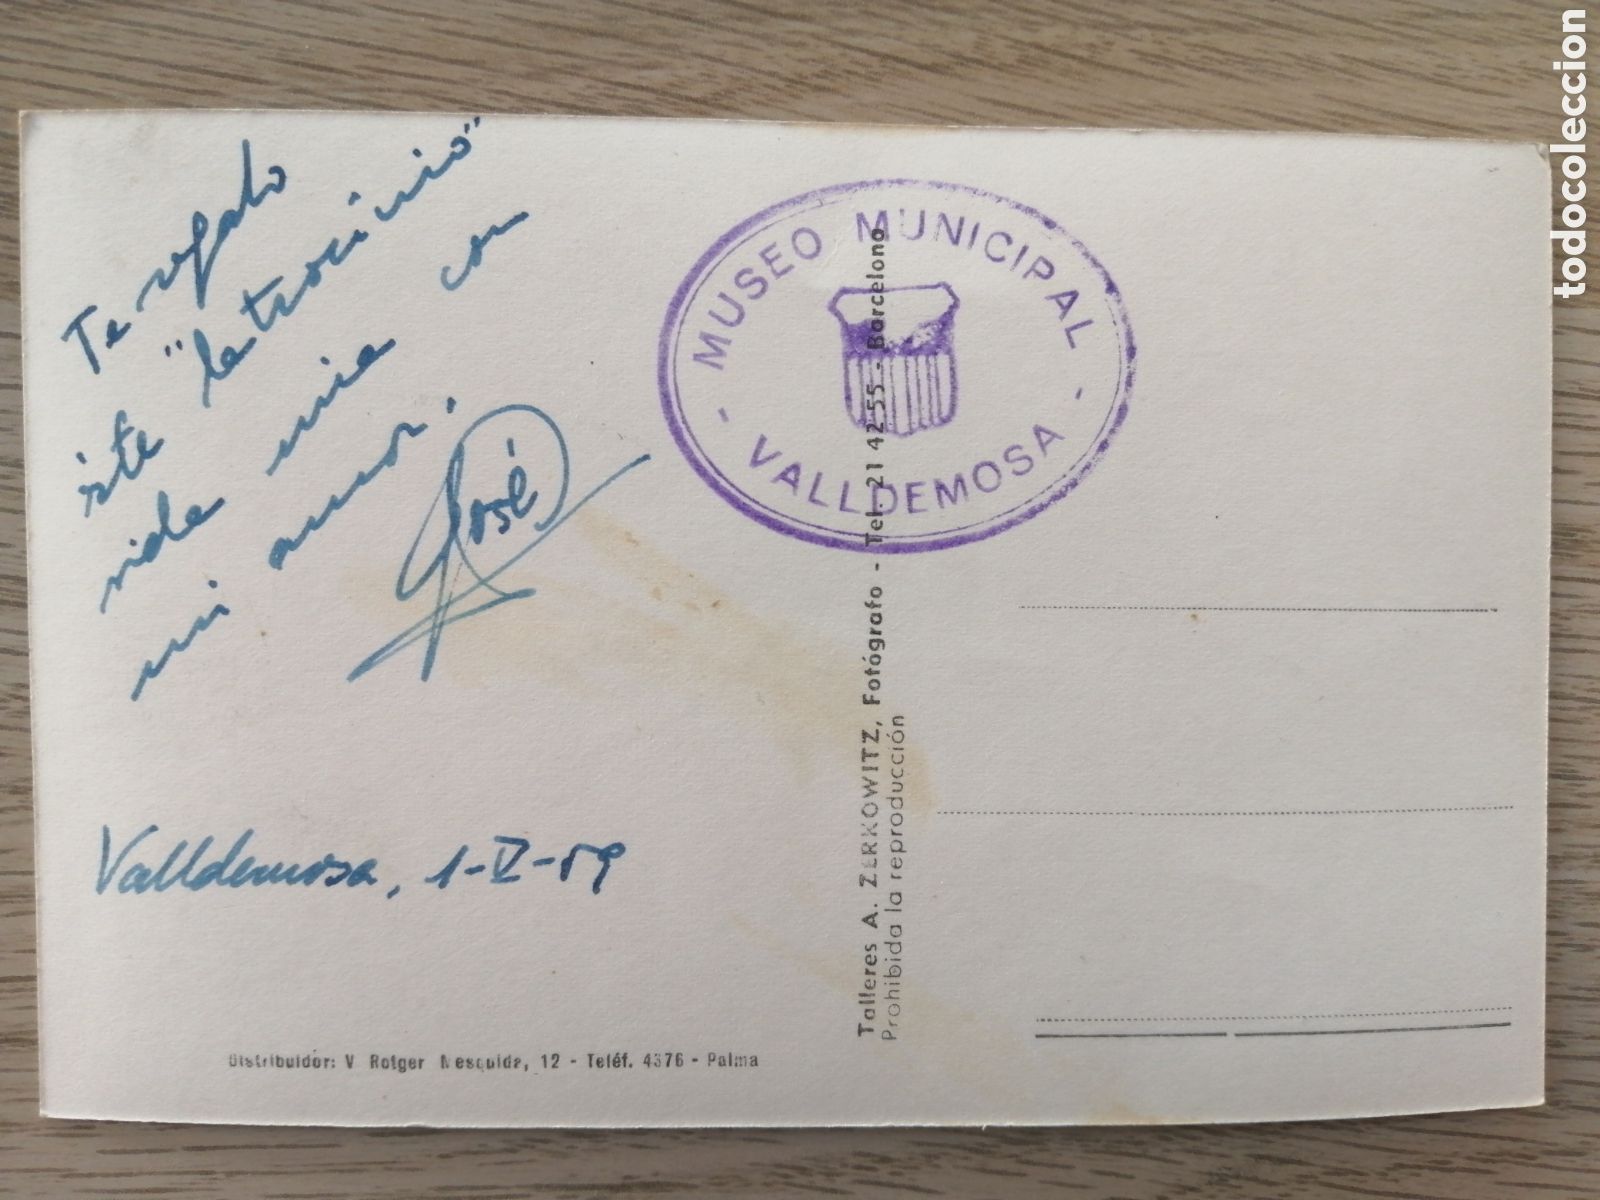 Te regalo
éste "latrocinio"
vida mia con
mi amor.
José
Valldemosa, 1-V-59
MUSEO MUNICIPAL
- VALLDEMOSA -
Talleres A. ZERKOWITZ, Fotógrafo - Tel. 21 42 55 - Barcelona
Prohibida la reproducción
Distribuidor: V Rotger Mesquida, 12 - Teléf. 4376 - Palma
todocoleccion